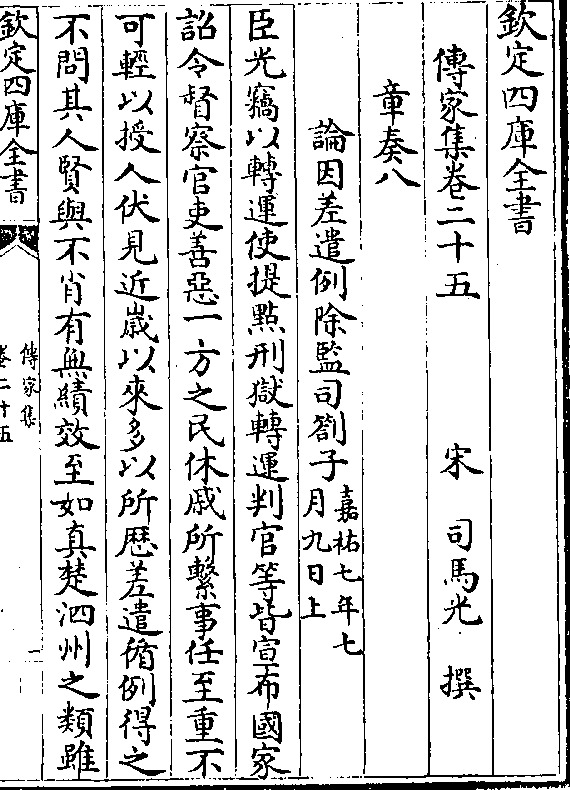 欽定四庫全書
傳家集卷二十五　宋　司馬光　撰
章奏八
論因差遣例除監司劄子嘉祐七年七
月九日上
臣光竊以轉運使提點刑獄轉運判官等皆宣布國家
詔令督察官吏善惡一方之民休戚所繫事任至重不
可輕以授人伏見近嵗以來多以所歴差遣循例得之
不問其人賢與不肖有無績效至如真楚泗州之類雖
欽定四庫全書
傳家集
卷二十五